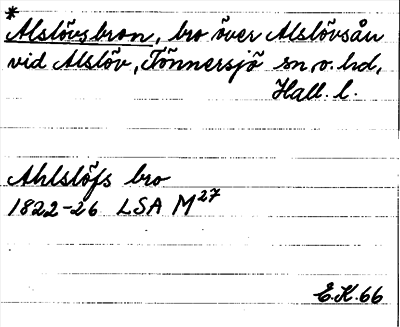 *
Alslövsbron, bro över Alslövsån
vid Alslöv, Tönnersjö sn o. hd,
Hall. l.
Ahlslöfs bro
1822-26 LSA M27
E.K. 66